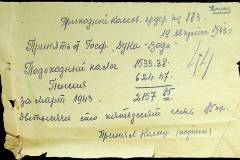 Копия
Приходный кассов. ордер № 883.
19 августа 1943 г.
Принято от Госф. Дука-Вода
Подоходный налог 1533.38
Пенсия 624.47
за март 1943. 2157 85
44
Дветысячи сто пятьдесят семь 85
Принял Кассир (подпись)